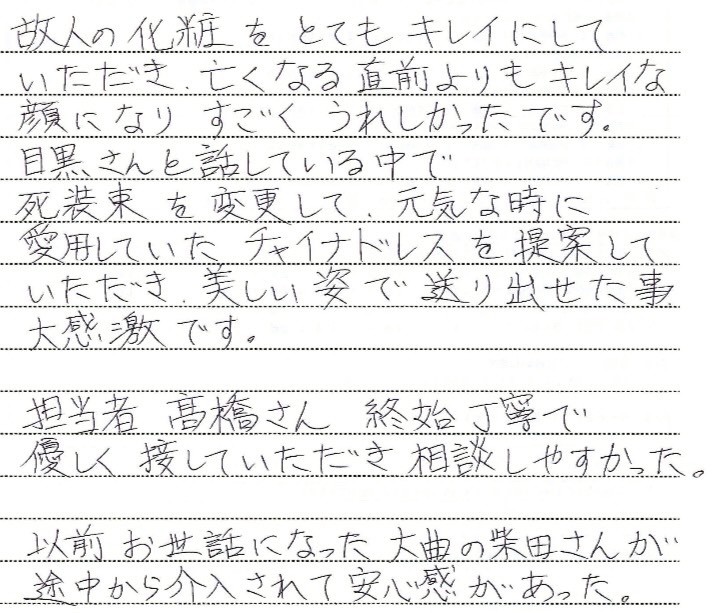 故人の化粧をとてもキレイにして
いただき、亡くなる直前よりもキレイな
顔になりすごくうれしかったです。
目黒さんと話している中で
死装束を変更して、元気な時に
愛用していたチャイナドレスを提案して
いただき、美しい姿で送り出せた事
大感激です。
担当者 髙橋さん 終始丁寧で
優しく接していただき相談しやすかった。
以前お世話になった大曲の柴田さんが
途中から介入されて安心感があった。